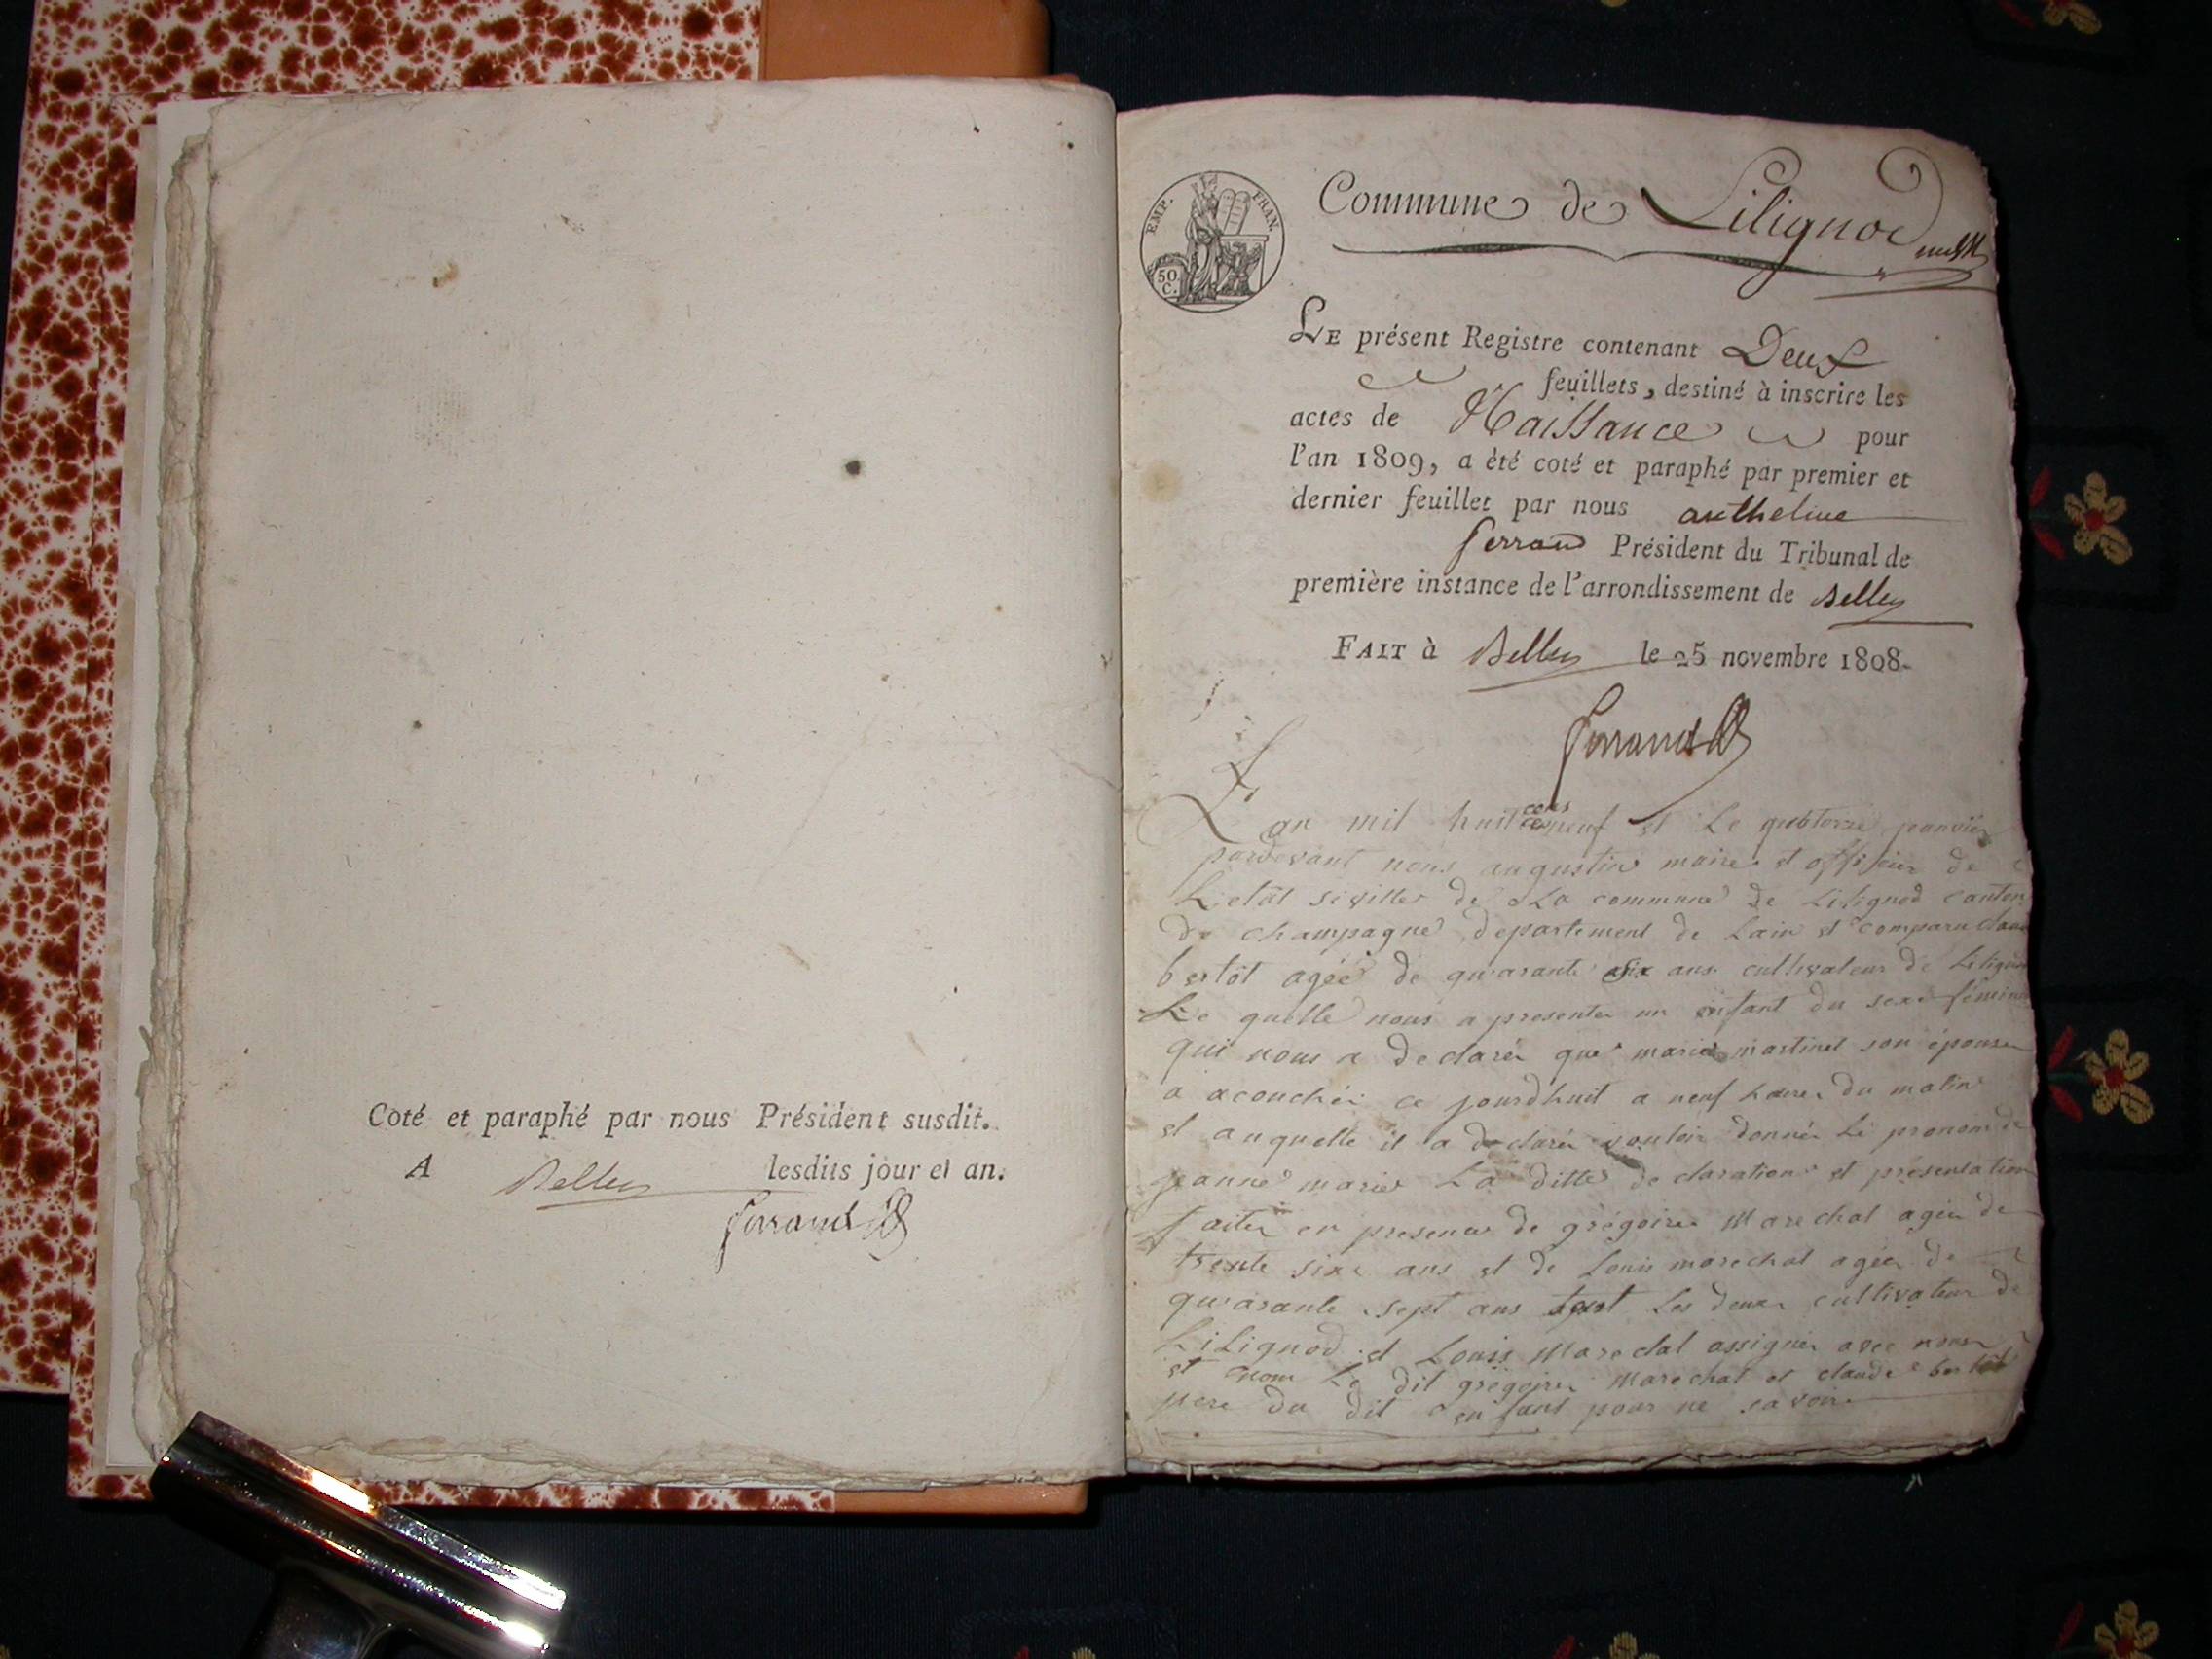 Coté et paraphé par nous Président susdit.
A Belley lesdits jour et an.
Ferrand
EMP. FRAN.
50
C.
Commune de Lilignod
LE présent Registre contenant Deux
feuillets, destiné à inscrire les
actes de Naissance pour
l'an 1809, a été coté et paraphé par premier et
dernier feuillet par nous anthelme
ferrand Président du Tribunal de
première instance de l'arrondissement de Belley
FAIT à Belley le 25 novembre 1808.
Ferrand
Lan mil huit cens neuf et Le quatorze janvier
pardevant nous augustin maire et offisier de
Letât siville de La commune de Lilignod canton
de champagne departement de Lain et comparu
bertôt agée de quarante six ans cultivateur de Lilignod
Le quelle nous a presenter un enfant du sexe féminin
qui nous a declarér que marie martinet son épouse
a acouchér ce jourdhuit a neuf heures du matin
et auquelle il a declarér vouloir donnér Le pronom de
jeanne marie La ditte declaration et présentation
faite en presence de grégoire marechal agée de
trente six ans et de Louis marechal agée de
quarante sept ans tout Les deux cultivateur de
Lilignod et Louis marechal assigner avec nous
et nom Le dit grégoire marechal et claude bertôt
pere du dit enfant pour ne savoir